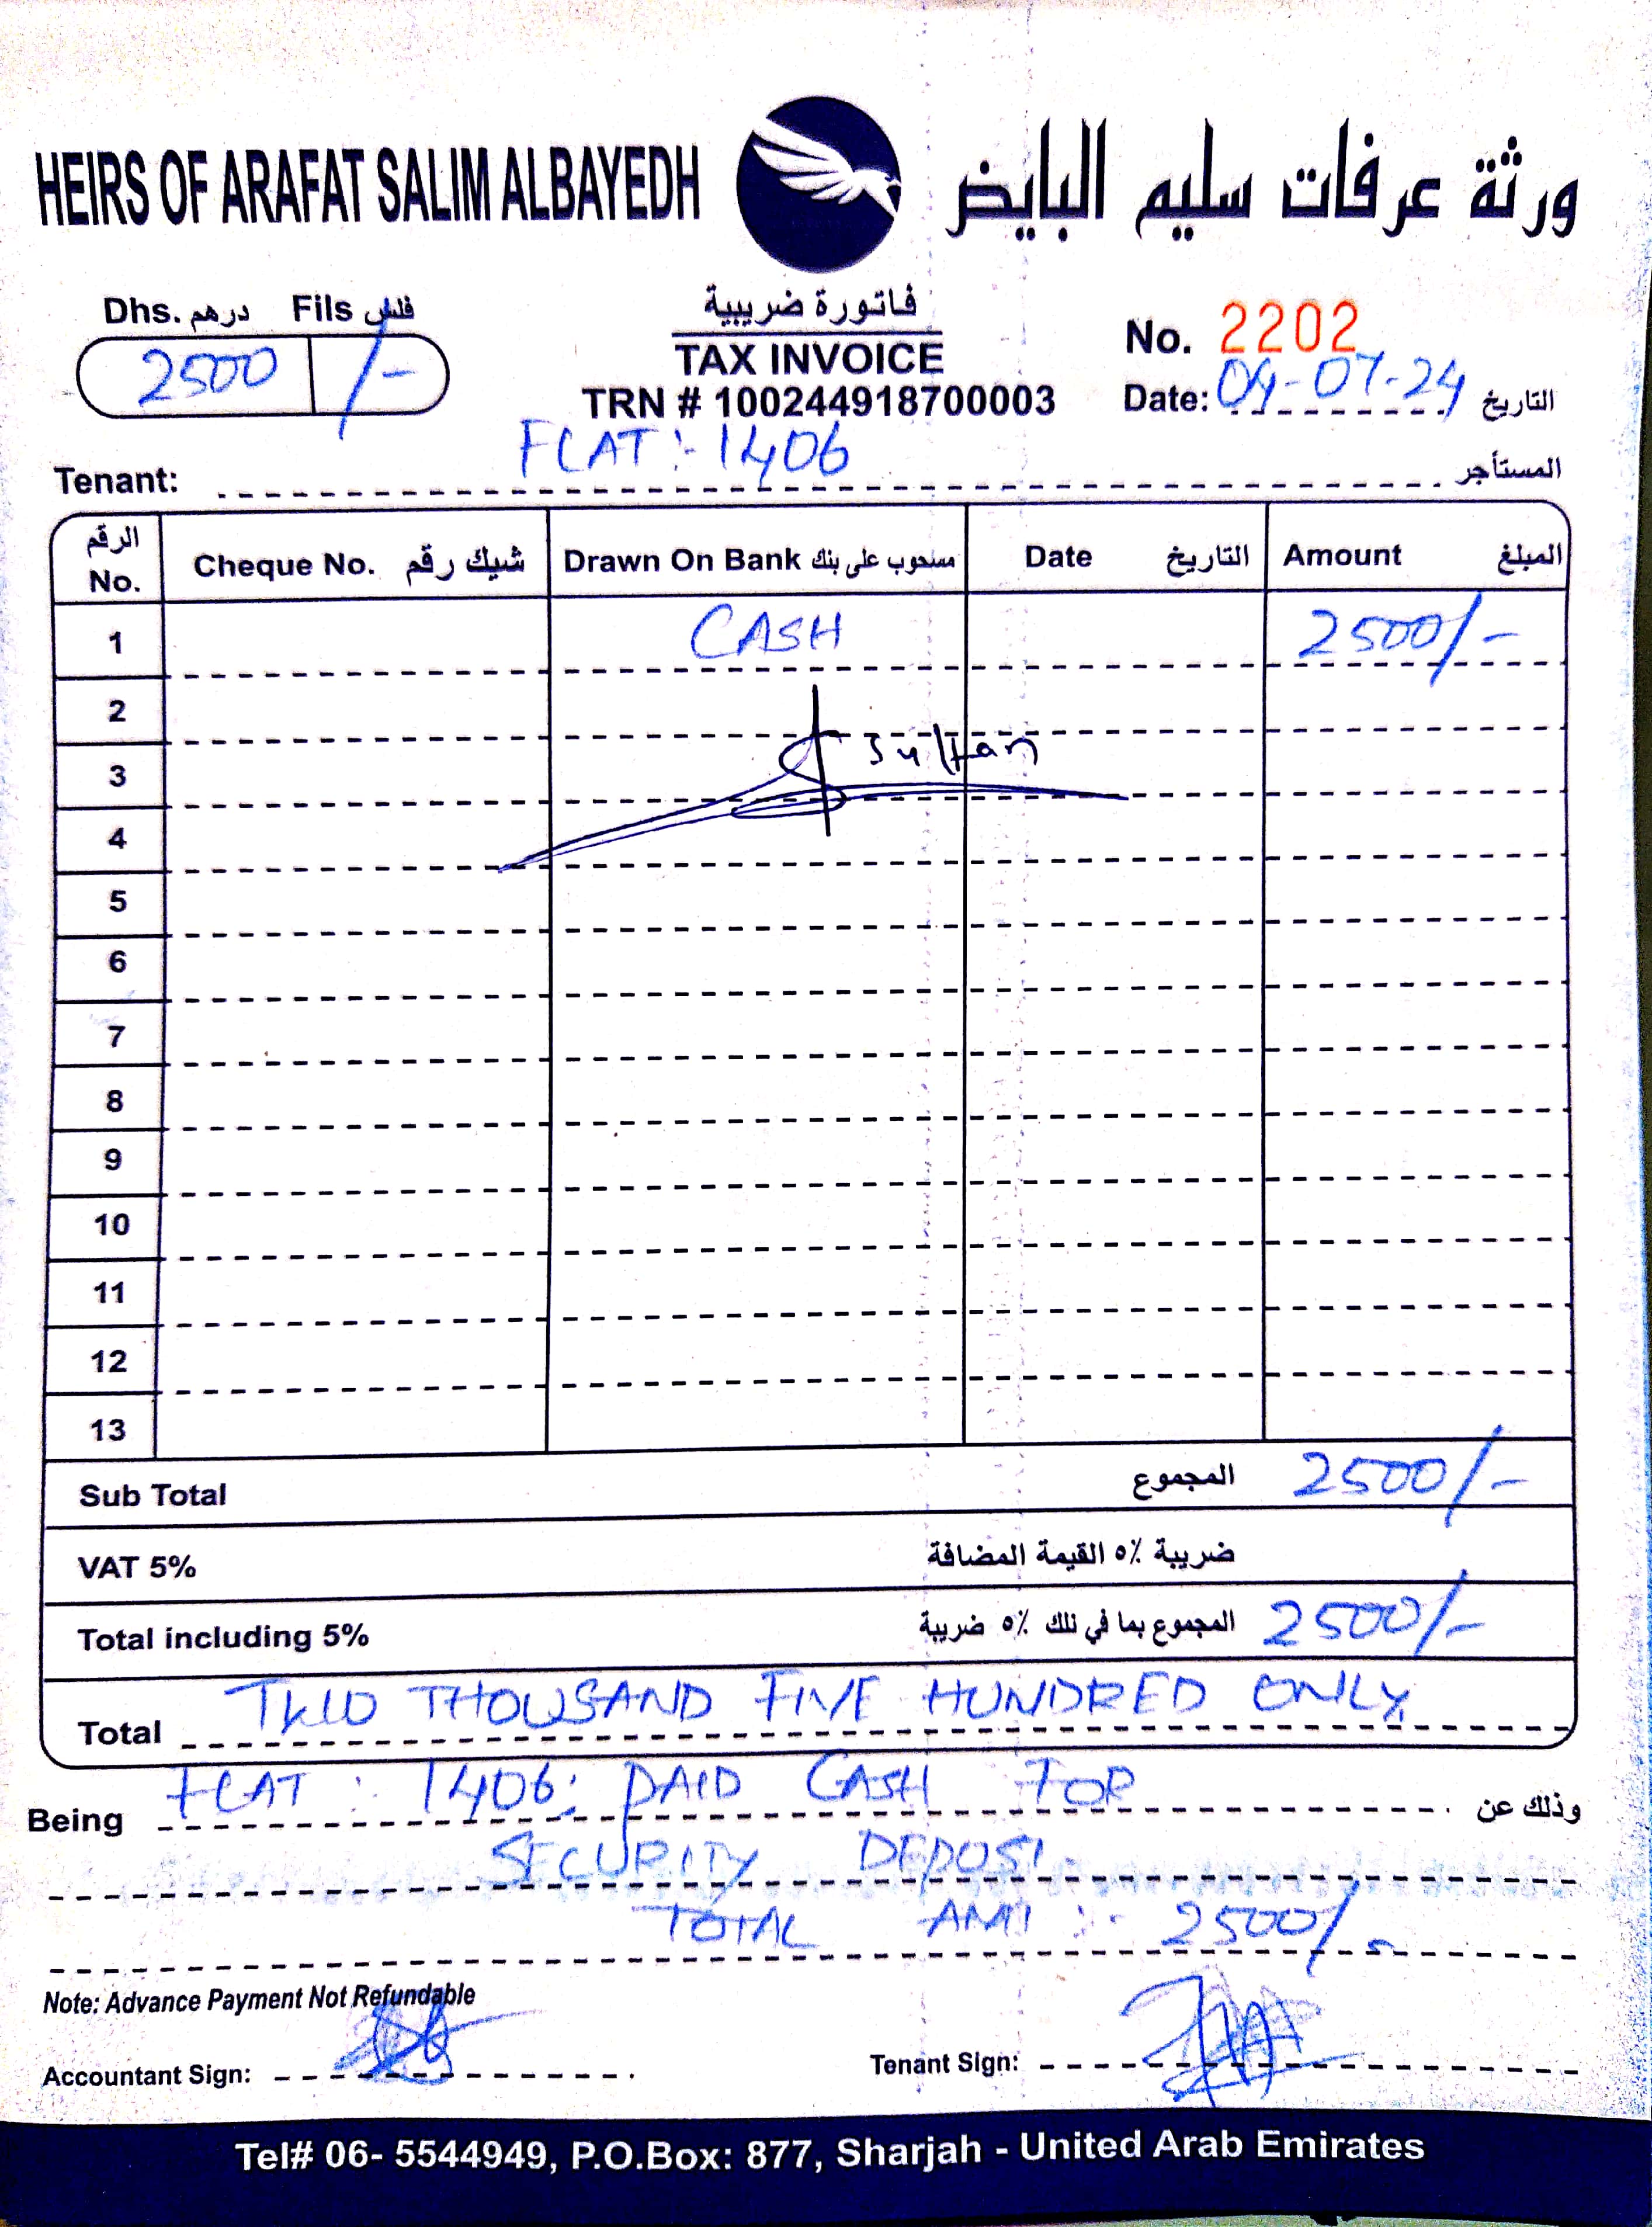 HEIRS OF ARAFAT SALIM ALBAYEDH ورثة عرفات سليم البايض
Dhs. درهم Fils فلس
2500 /-
فاتورة ضريبية
TAX INVOICE
TRN # 100244918700003
No. 2202
Date: 09-07-24 التاريخ
Tenant: FLAT :- 1406 المستأجر
الرقم No. Cheque No. شيك رقم Drawn On Bank مسحوب على بنك Date التاريخ Amount المبلغ
1 CASH 2500/-
2
3 Sultan
4
5
6
7
8
9
10
11
12
13
Sub Total المجموع 2500/-
VAT 5% ضريبة ٥٪ القيمة المضافة
Total including 5% المجموع بما في ذلك ٥٪ ضريبة 2500/-
Total TWO THOUSAND FIVE HUNDRED ONLY
Being FLAT : 1406: PAID CASH FOR وذلك عن
SECURITY DEPOSI.
TOTAL AMT :- 2500/-
Note: Advance Payment Not Refundable
Accountant Sign: Tenant Sign:
Tel# 06- 5544949, P.O.Box: 877, Sharjah - United Arab Emirates